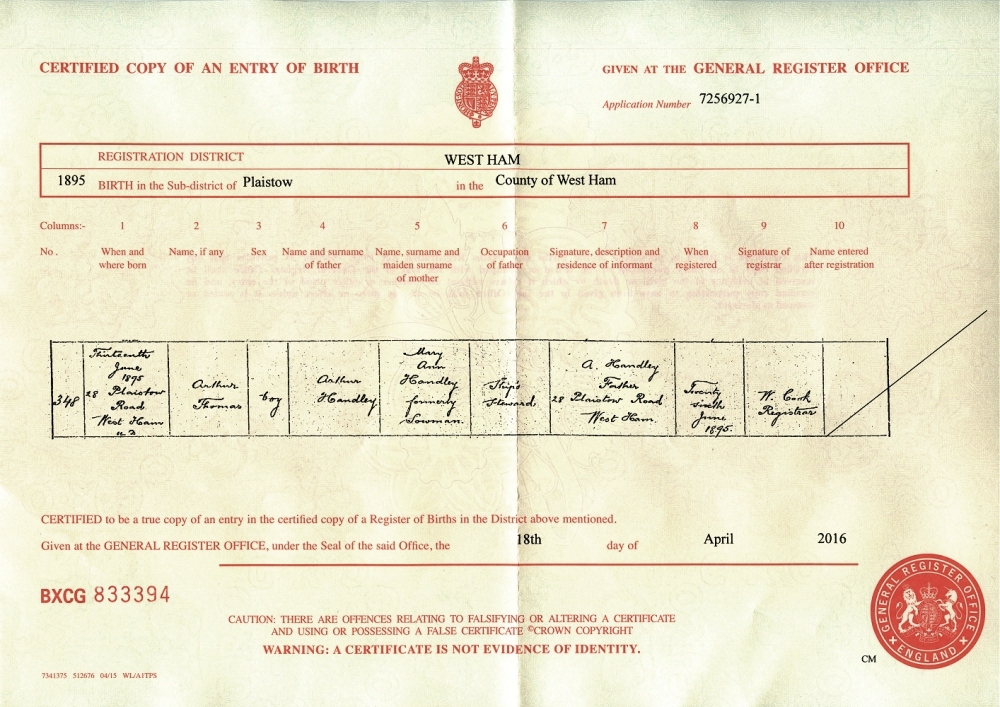 CERTIFIED COPY OF AN ENTRY OF BIRTH
GIVEN AT THE GENERAL REGISTER OFFICE
Application Number 7256927-1
REGISTRATION DISTRICT WEST HAM
1895 BIRTH in the Sub-district of Plaistow in the County of West Ham
Columns:- 1 2 3 4 5 6 7 8 9 10
No. When and where born Name, if any Sex Name and surname of father Name, surname and maiden surname of mother Occupation of father Signature, description and residence of informant When registered Signature of registrar Name entered after registration
348
Thirteenth
June
1895
28 Plaistow
Road
West Ham
Arthur
Thomas
boy
Arthur
Handley
Mary
Ann
Handley
formerly
Sowman.
Ship's
Steward
A. Handley
Father
28 Plaistow Road
West Ham.
Twenty
sixth
June
1895.
W. Cook
Registrar
CERTIFIED to be a true copy of an entry in the certified copy of a Register of Births in the District above mentioned.
Given at the GENERAL REGISTER OFFICE, under the Seal of the said Office, the 18th day of April 2016
BXCG 833394
CAUTION: THERE ARE OFFENCES RELATING TO FALSIFYING OR ALTERING A CERTIFICATE
AND USING OR POSSESSING A FALSE CERTIFICATE ©CROWN COPYRIGHT
WARNING: A CERTIFICATE IS NOT EVIDENCE OF IDENTITY.
GENERAL REGISTER OFFICE
ENGLAND
CM
7341375 512676 04/15 WL/A1TPS